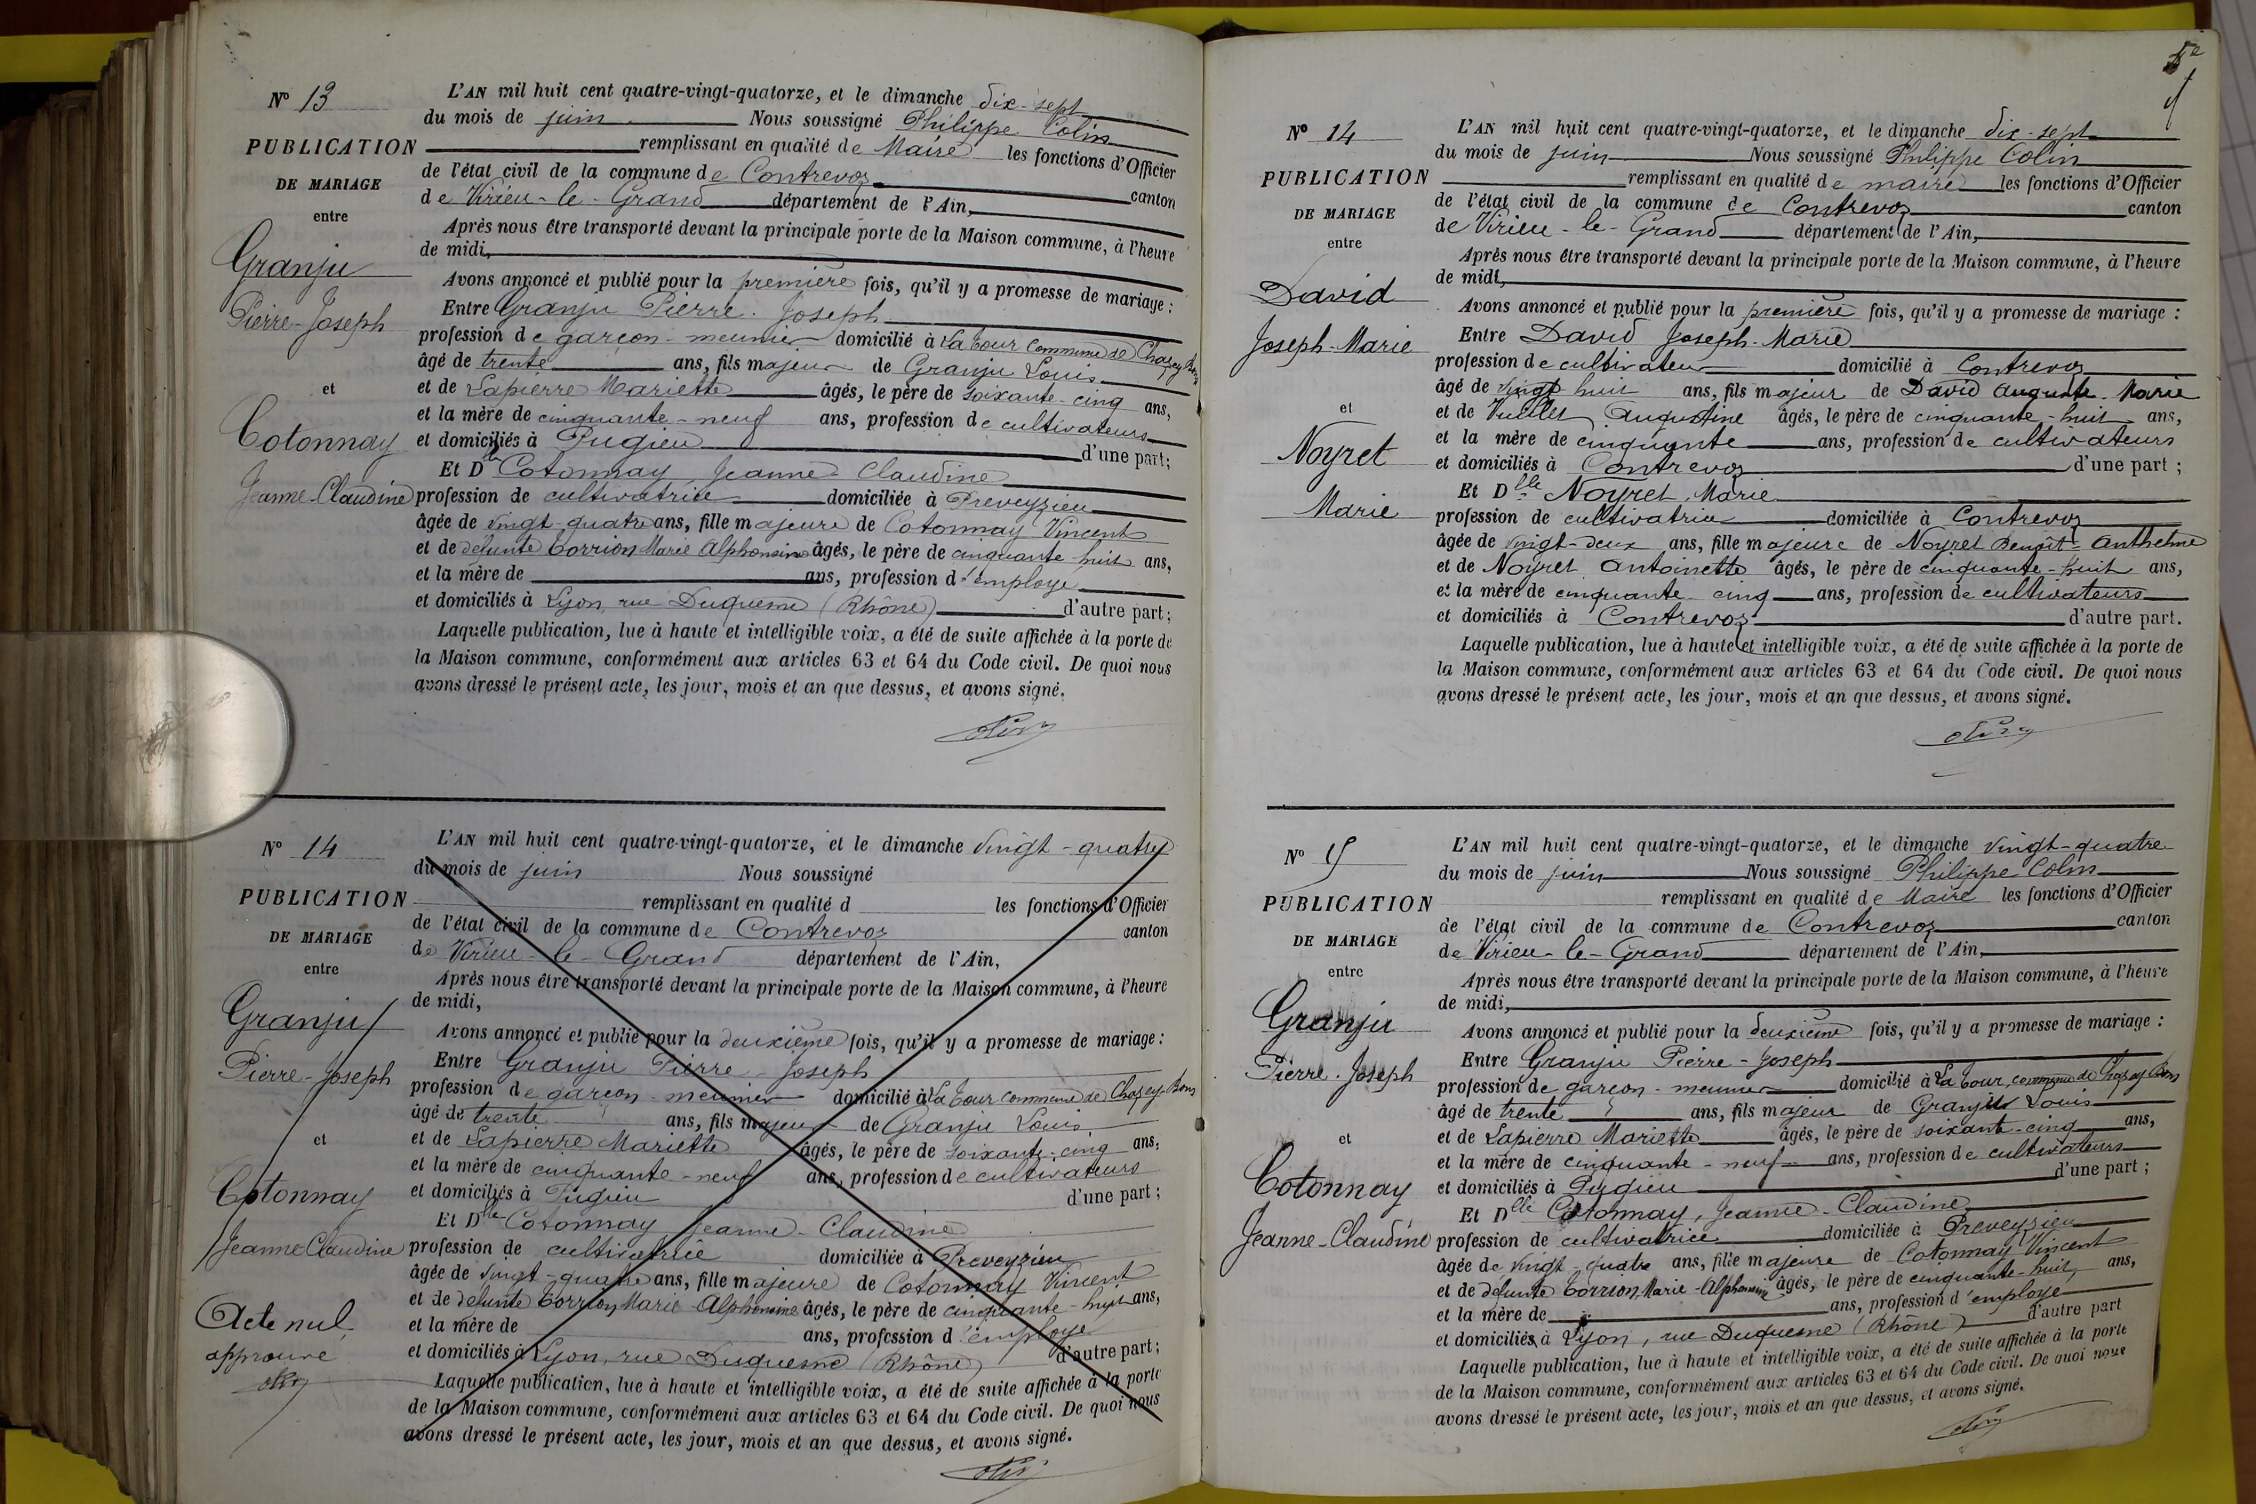 N° 13
PUBLICATION
DE MARIAGE
entre
Granju
Pierre-Joseph
et
Cotonnay
Jeanne-Claudine
L'AN mil huit cent quatre-vingt-quatorze, et le dimanche dix-sept
du mois de juin Nous soussigné Philippe Colin
remplissant en qualité de Maire les fonctions d'Officier
de l'état civil de la commune de Contrevoz canton
de Virieu-le-Grand département de l'Ain,
Après nous être transporté devant la principale porte de la Maison commune, à l'heure
de midi,
Avons annoncé et publié pour la première fois, qu'il y a promesse de mariage :
Entre Granju Pierre-Joseph
profession de garçon-meunier domicilié à La Tour commune de Chazey-Bons
âgé de trente ans, fils majeur de Granju Louis
et de Lapierre Mariette âgés, le père de soixante-cinq ans,
et la mère de cinquante-neuf ans, profession de cultivateurs
et domiciliés à Pugieu d'une part;
Et Dlle Cotonnay Jeanne-Claudine
profession de cultivatrice domiciliée à Preveyzieu
âgée de vingt-quatre ans, fille majeure de Cotonnay Vincent
et de défunte Torrion Marie Alphonsine âgés, le père de cinquante-huit ans,
et la mère de ans, profession d'employé
et domiciliés à Lyon, rue Duquesne (Rhône) d'autre part;
Laquelle publication, lue à haute et intelligible voix, a été de suite affichée à la porte de
la Maison commune, conformément aux articles 63 et 64 du Code civil. De quoi nous
avons dressé le présent acte, les jour, mois et an que dessus, et avons signé.
Colin
N° 14
PUBLICATION
DE MARIAGE
entre
Granju
Pierre-Joseph
et
Cotonnay
Jeanne Claudine
Acte nul
approuvé
Colin
L'AN mil huit cent quatre-vingt-quatorze, et le dimanche vingt-quatre
du mois de juin Nous soussigné
remplissant en qualité d les fonctions d'Officier
de l'état civil de la commune de Contrevoz canton
de Virieu-le-Grand département de l'Ain,
Après nous être transporté devant la principale porte de la Maison commune, à l'heure
de midi,
Avons annoncé et publié pour la deuxième fois, qu'il y a promesse de mariage :
Entre Granju Pierre-Joseph
profession de garçon-meunier domicilié à La Tour commune de Chazey-Bons
âgé de trente ans, fils majeur de Granju Louis
et de Lapierre Mariette âgés, le père de soixante-cinq ans,
et la mère de cinquante-neuf ans, profession de cultivateurs
et domiciliés à Pugieu d'une part ;
Et Dlle Cotonnay Jeanne-Claudine
profession de cultivatrice domiciliée à Preveyzieu
âgée de vingt-quatre ans, fille majeure de Cotonnay Vincent
et de défunte Torrion Marie-Alphonsine âgés, le père de cinquante-huit ans,
et la mère de ans, profession d'employé
et domiciliés à Lyon, rue Duquesne (Rhône) d'autre part ;
Laquelle publication, lue à haute et intelligible voix, a été de suite affichée à la porte
de la Maison commune, conformément aux articles 63 et 64 du Code civil. De quoi nous
avons dressé le présent acte, les jour, mois et an que dessus, et avons signé.
Colin
N° 14
PUBLICATION
DE MARIAGE
entre
David
Joseph-Marie
et
Noyret
Marie
L'AN mil huit cent quatre-vingt-quatorze, et le dimanche dix-sept
du mois de juin Nous soussigné Philippe Colin
remplissant en qualité de maire les fonctions d'Officier
de l'état civil de la commune de Contrevoz canton
de Virieu-le-Grand département de l'Ain,
Après nous être transporté devant la principale porte de la Maison commune, à l'heure
de midi,
Avons annoncé et publié pour la première fois, qu'il y a promesse de mariage :
Entre David Joseph-Marie
profession de cultivateur domicilié à Contrevoz
âgé de vingt huit ans, fils majeur de David Auguste-Marie
et de Vuillet Augustine âgés, le père de cinquante-huit ans,
et la mère de cinquante ans, profession de cultivateurs
et domiciliés à Contrevoz d'une part ;
Et Dlle Noyret, Marie
profession de cultivatrice domiciliée à Contrevoz
âgée de vingt-deux ans, fille majeure de Noyret Benoît-Anthelme
et de Noyret Antoinette âgés, le père de cinquante-huit ans,
et la mère de cinquante-cinq ans, profession de cultivateurs
et domiciliés à Contrevoz d'autre part.
Laquelle publication, lue à haute et intelligible voix, a été de suite affichée à la porte de
la Maison commune, conformément aux articles 63 et 64 du Code civil. De quoi nous
avons dressé le présent acte, les jour, mois et an que dessus, et avons signé.
Colin
N° 15
PUBLICATION
DE MARIAGE
entre
Granju
Pierre-Joseph
et
Cotonnay
Jeanne-Claudine
L'AN mil huit cent quatre-vingt-quatorze, et le dimanche vingt-quatre
du mois de juin Nous soussigné Philippe Colin
remplissant en qualité de Maire les fonctions d'Officier
de l'état civil de la commune de Contrevoz canton
de Virieu-le-Grand département de l'Ain,
Après nous être transporté devant la principale porte de la Maison commune, à l'heure
de midi,
Avons annoncé et publié pour la deuxième fois, qu'il y a promesse de mariage :
Entre Granju Pierre-Joseph
profession de garçon-meunier domicilié à La Tour, commune de Chazey-Bons
âgé de trente ans, fils majeur de Granju Louis
et de Lapierre Mariette âgés, le père de soixante-cinq ans,
et la mère de cinquante-neuf ans, profession de cultivateurs
et domiciliés à Pugieu d'une part ;
Et Dlle Cotonnay, Jeanne-Claudine
profession de cultivatrice domiciliée à Preveyzieu
âgée de vingt-quatre ans, fille majeure de Cotonnay Vincent
et de défunte Torrion, Marie-Alphonsine âgés, le père de cinquante-huit ans,
et la mère de ans, profession d'employé
et domiciliés à Lyon, rue Duquesne (Rhône) d'autre part
Laquelle publication, lue à haute et intelligible voix, a été de suite affichée à la porte
de la Maison commune, conformément aux articles 63 et 64 du Code civil. De quoi nous
avons dressé le présent acte, les jour, mois et an que dessus, et avons signé.
Colin